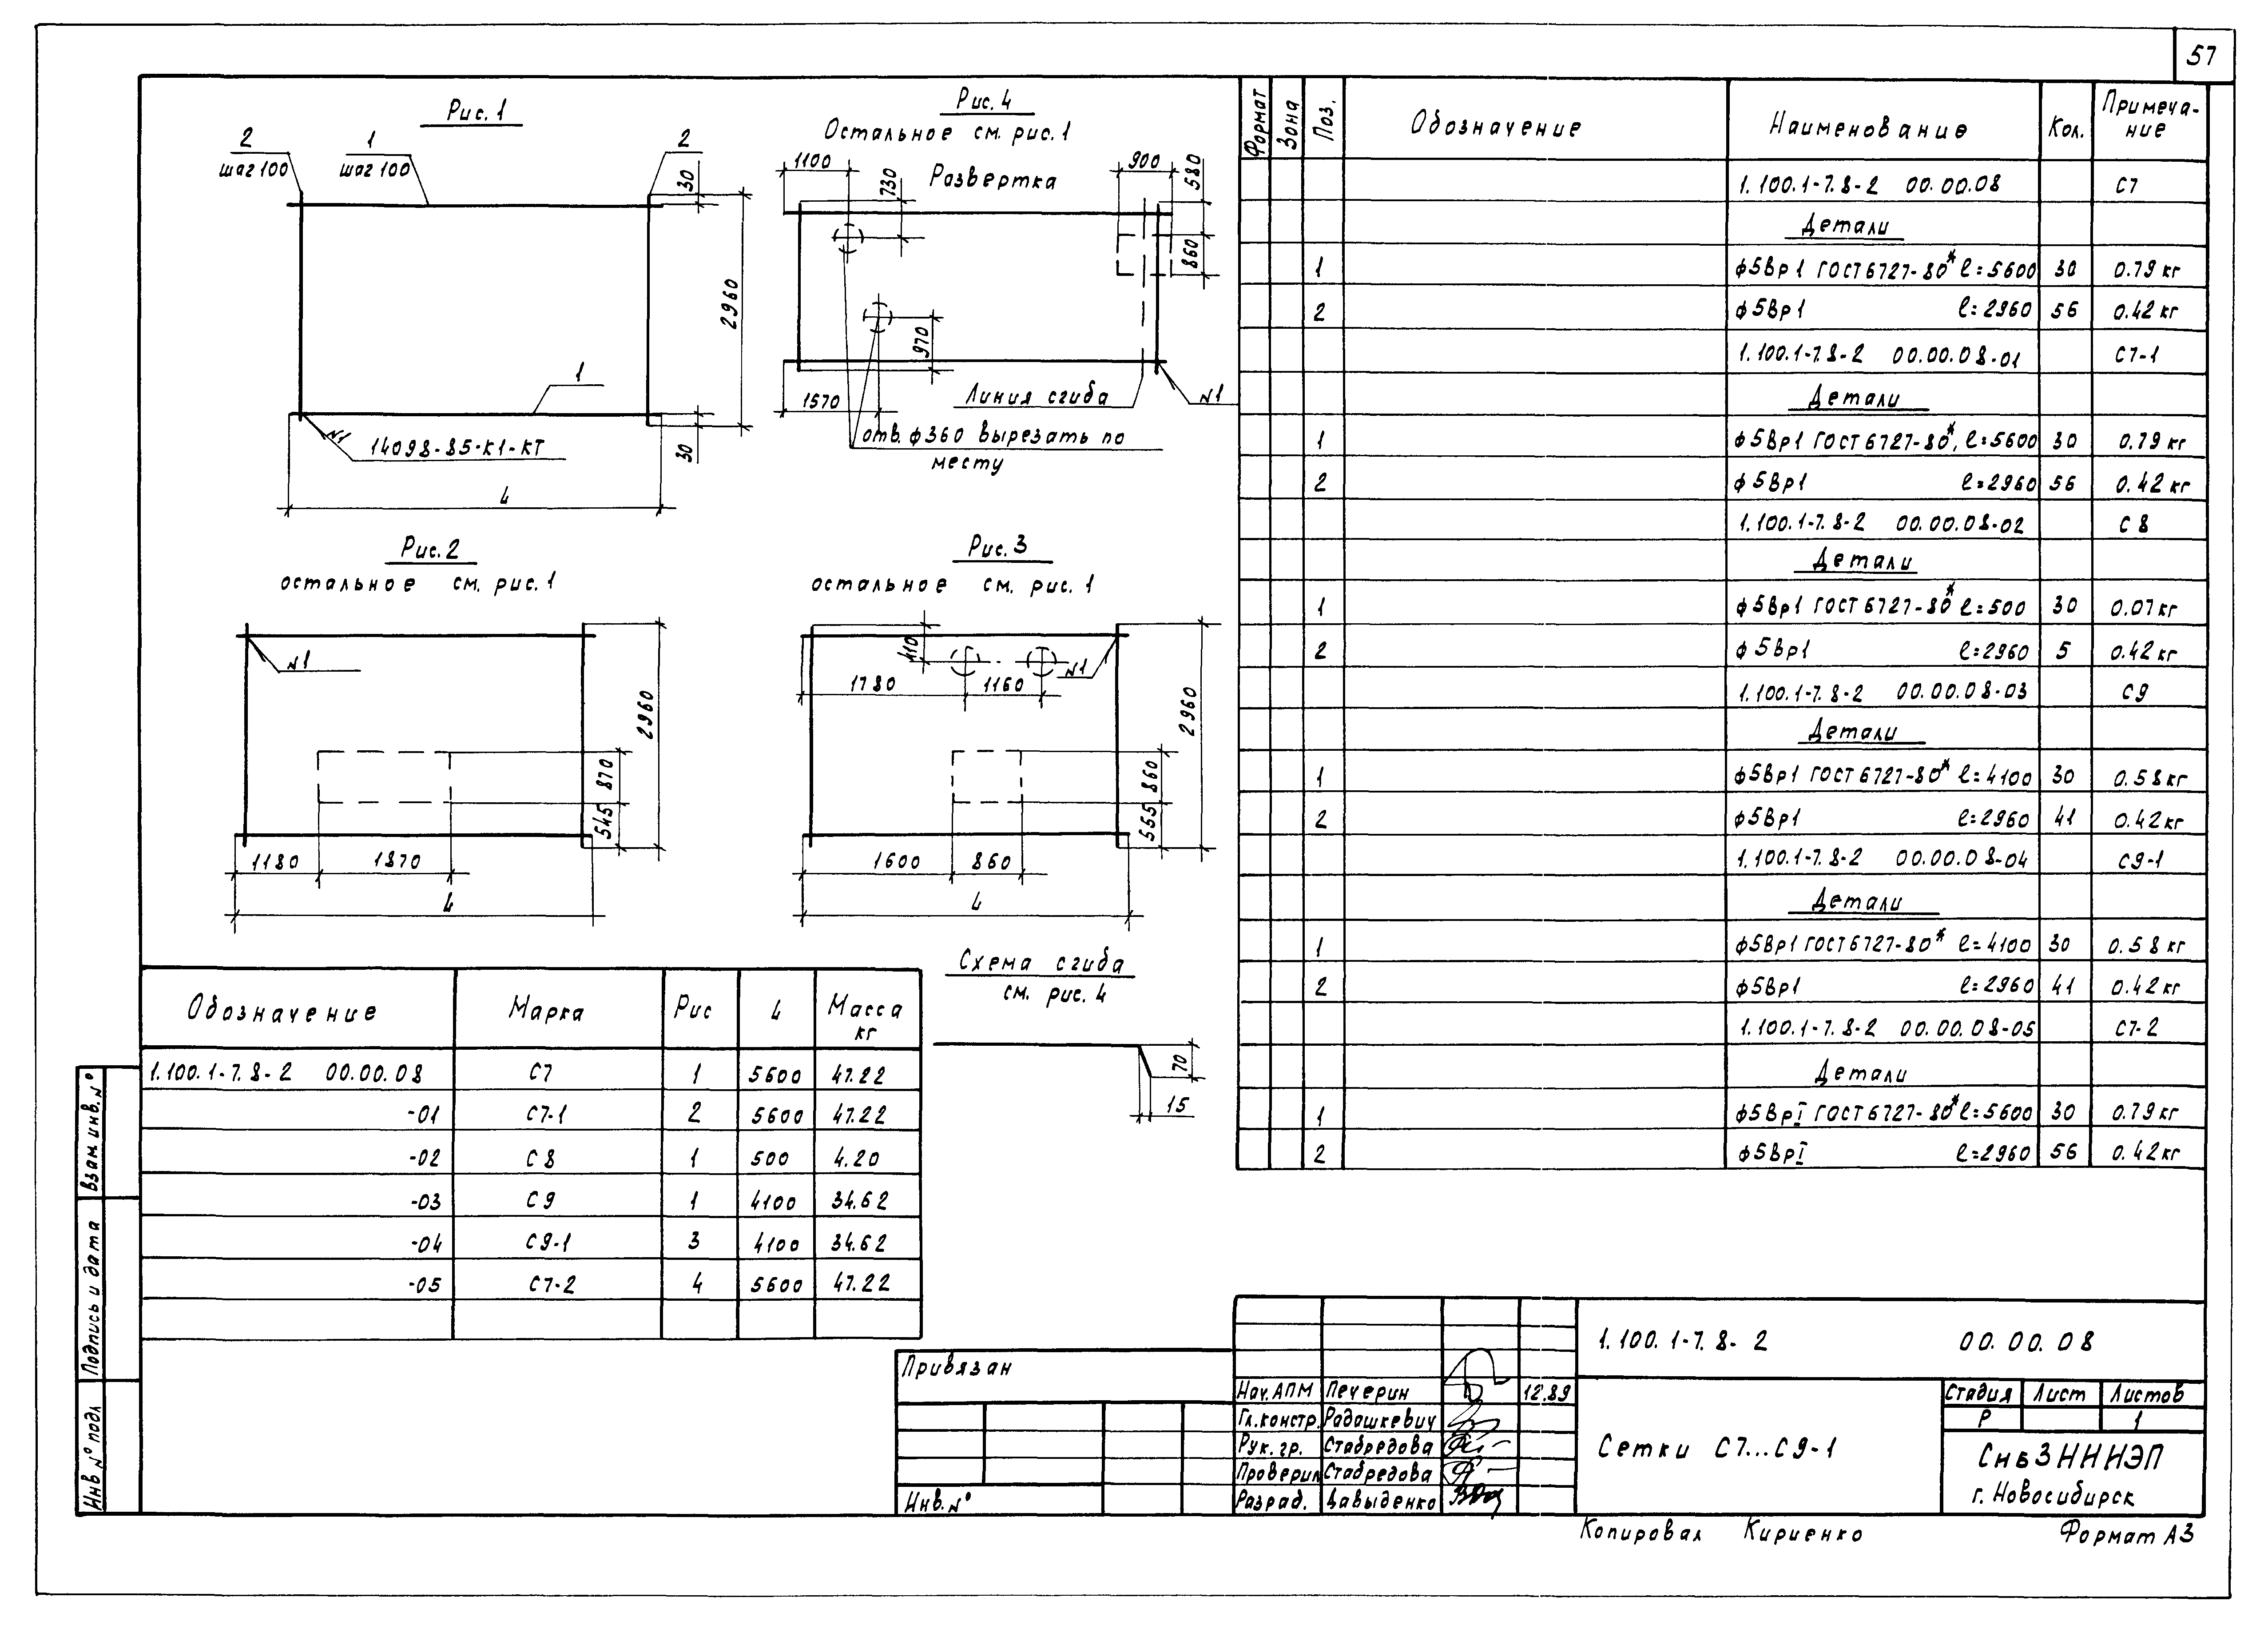 57
Рис. 1
2
шаг 100
1
шаг 100
2
30
2960
1
№1
14098-85-К1-КТ
30
L
Рис. 4
Остальное см. рис. 1
Развертка
1100
730
900
580
860
970
1570
Линия сгиба
№1
отв. ф360 вырезать по
месту
Рис. 2
остальное см. рис. 1
№1
2960
870
545
1180
1870
L
Рис. 3
остальное см. рис. 1
410
1780
1160
№1
2960
860
555
1600
860
L
Схема сгиба
см. рис. 4
70
15
Обозначение Марка Рис L Масса кг
1.100.1-7.8-2 00.00.08 С7 1 5600 47.22
-01 С7-1 2 5600 47.22
-02 С8 1 500 4.20
-03 С9 1 4100 34.62
-04 С9-1 3 4100 34.62
-05 С7-2 4 5600 47.22
Формат Зона Поз. Обозначение Наименование Кол. Примеча-
ние
1.100.1-7.8-2 00.00.08 С7
Детали
1 ф5Вр1 ГОСТ 6727-80* ℓ=5600 30 0.79 кг
2 ф5Вр1 ℓ=2960 56 0.42 кг
1.100.1-7.8-2 00.00.08-01 С7-1
Детали
1 ф5Вр1 ГОСТ 6727-80*, ℓ=5600 30 0.79 кг
2 ф5Вр1 ℓ=2960 56 0.42 кг
1.100.1-7.8-2 00.00.08-02 С8
Детали
1 ф5Вр1 ГОСТ 6727-80* ℓ=500 30 0.07 кг
2 ф5Вр1 ℓ=2960 5 0.42 кг
1.100.1-7.8-2 00.00.08-03 С9
Детали
1 ф5Вр1 ГОСТ 6727-80* ℓ=4100 30 0.58 кг
2 ф5Вр1 ℓ=2960 41 0.42 кг
1.100.1-7.8-2 00.00.08-04 С9-1
Детали
1 ф5Вр1 ГОСТ 6727-80* ℓ=4100 30 0.58 кг
2 ф5Вр1 ℓ=2960 41 0.42 кг
1.100.1-7.8-2 00.00.08-05 С7-2
Детали
1 ф5ВрI ГОСТ 6727-80* ℓ=5600 30 0.79 кг
2 ф5ВрI ℓ=2960 56 0.42 кг
Взам. инв. №
Подпись и дата
Инв № подл
Привязан
Инв. №
Нач. АПМ Печерин 12.89
Гл. констр. Радашкевич
Рук. гр. Стабредова
Проверил Стабредова
Разраб. Давыденко
1.100.1-7.8-2 00.00.08
Сетки С7...С9-1
Стадия Лист Листов
Р 1
СибЗНИИЭП
г. Новосибирск
Копировал Кириенко Формат А3